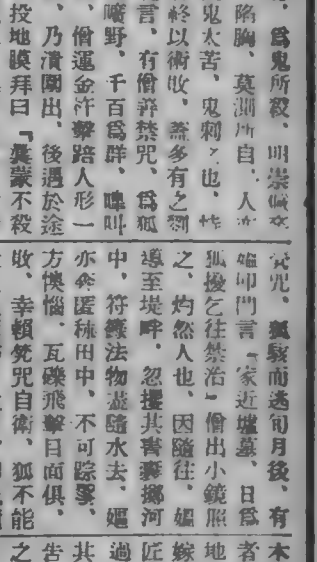 、爲鬼所殺、明崇儼
陷胸、莫測所自、人
鬼太苦、鬼刺之也、恃
終以術敗、蓋多有之劉
言、有僧善禁咒、爲狐
曠野、千百爲群、嘷叫
、僧運金杵擊踣人形一
、乃潰圍出、後遇於途
投地膜拜曰『曩蒙不殺
梵咒、狐駭而逃旬月後、有
嫗叩門言『家近墟墓、日爲
狐擾乞往禁治』僧出小鏡照
之、灼然人也、因隨往、嫗
導至堤畔、忽攫其書囊擲河
中、符籙法物盡隨水去、嫗
亦奔匿秫田中、不可踪跡、
方懊惱、瓦礫飛擊目面俱、
敗、幸賴梵咒自衛、狐不能
木
者
地
嫁
匠
過
其
告
之